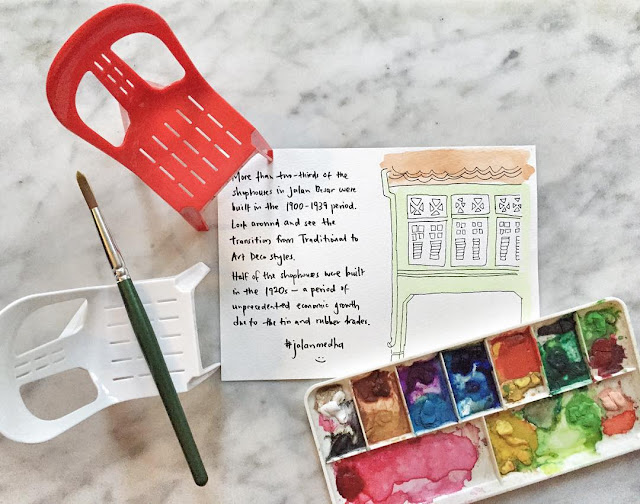 More than two-thirds of the
shophouses in Jalan Besar were
built in the 1900-1939 period.
Look around and see the
transition from Traditional to
Art Deco styles.
Half of the shophouses were built
in the 1920s — a period of
unprecedented economic growth
due to the tin and rubber trades.
#jalanmedha